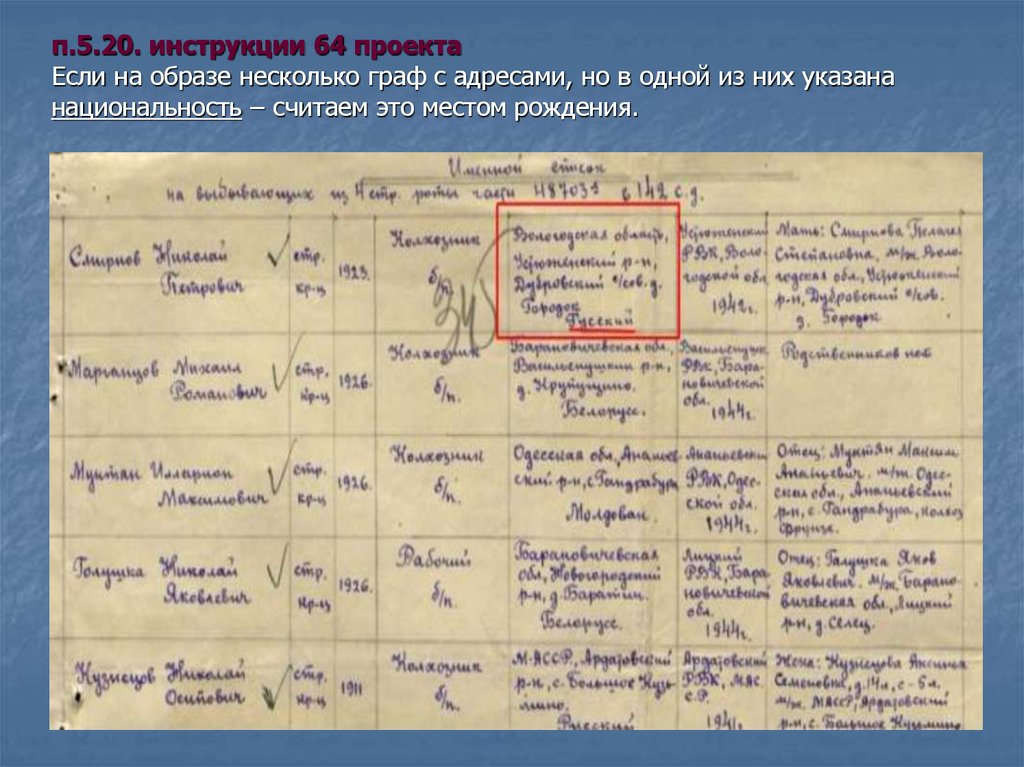 п.5.20. инструкции 64 проекта
Если на образе несколько граф с адресами, но в одной из них указана
национальность – считаем это местом рождения.
Именной список
на выбывающих из 4 стр. роты части в 142 с.д.
Смирнов Николай
Петрович
стр.
кр-ц
1923.
Колхозник
б/п
Вологодская область,
Устюженский р-н,
Дубровский с/сов. д.
Городок
Русский
Устюженский
РВК, Воло-
годской обл
1942г.
Мать: Смирнова Пелагея
Степановна, м/ж. Воло-
годская обл., Устюженский
р-н, Дубровский с/сов.
д. Городок
Марганцов Михаил
Романович
стр.
кр-ц
1926.
Колхозник
б/п.
Барановичевская обл.,
р-н,
д.
Белорусс.
РВК, Бара-
новичевской
обл.
1944г.
Родственников нет
Мунтян Илларион
Максимович
стр.
кр-ц
1926.
Колхозник
б/п.
Одесская обл., Ананьев-
ский р-н, с. Гандрабура
Молдован.
Ананьевский
РВК, Одес-
ской обл.
1944г.
Отец: Мунтян Максим
Ананьевич. м/ж. Одес-
ская обл., Ананьевский
р-н, с. Гандрабура, колхоз
Фрунзе.
Голушка Николай
Яковлевич
стр.
кр-ц
1926.
Рабочий
б/п.
Барановичевская
обл., Новогородский
р-н, д.
Белорусс.
РВК, Бара-
новичевской
обл.
1944г.
Отец: Галушка Яков
Яковлевич. м/ж, Барано-
вичевская обл.,
р-н, д. Селец.
Кузнецов Николай
Осипович
стр.
кр-ц
1911
Колхозник
б/п.
М.АССР., Ардатовский
р-н, с. Большое Кузь-
мино.
Русский
Ардатовский
РВК, МАС.
С.Р.
1941г.
Жена: Кузнецова Аксинья
Семеновна, д. 14л, с - 5л.
м/ж. МАССР, Ардатовский
р-н, с. Большое Кузьмино